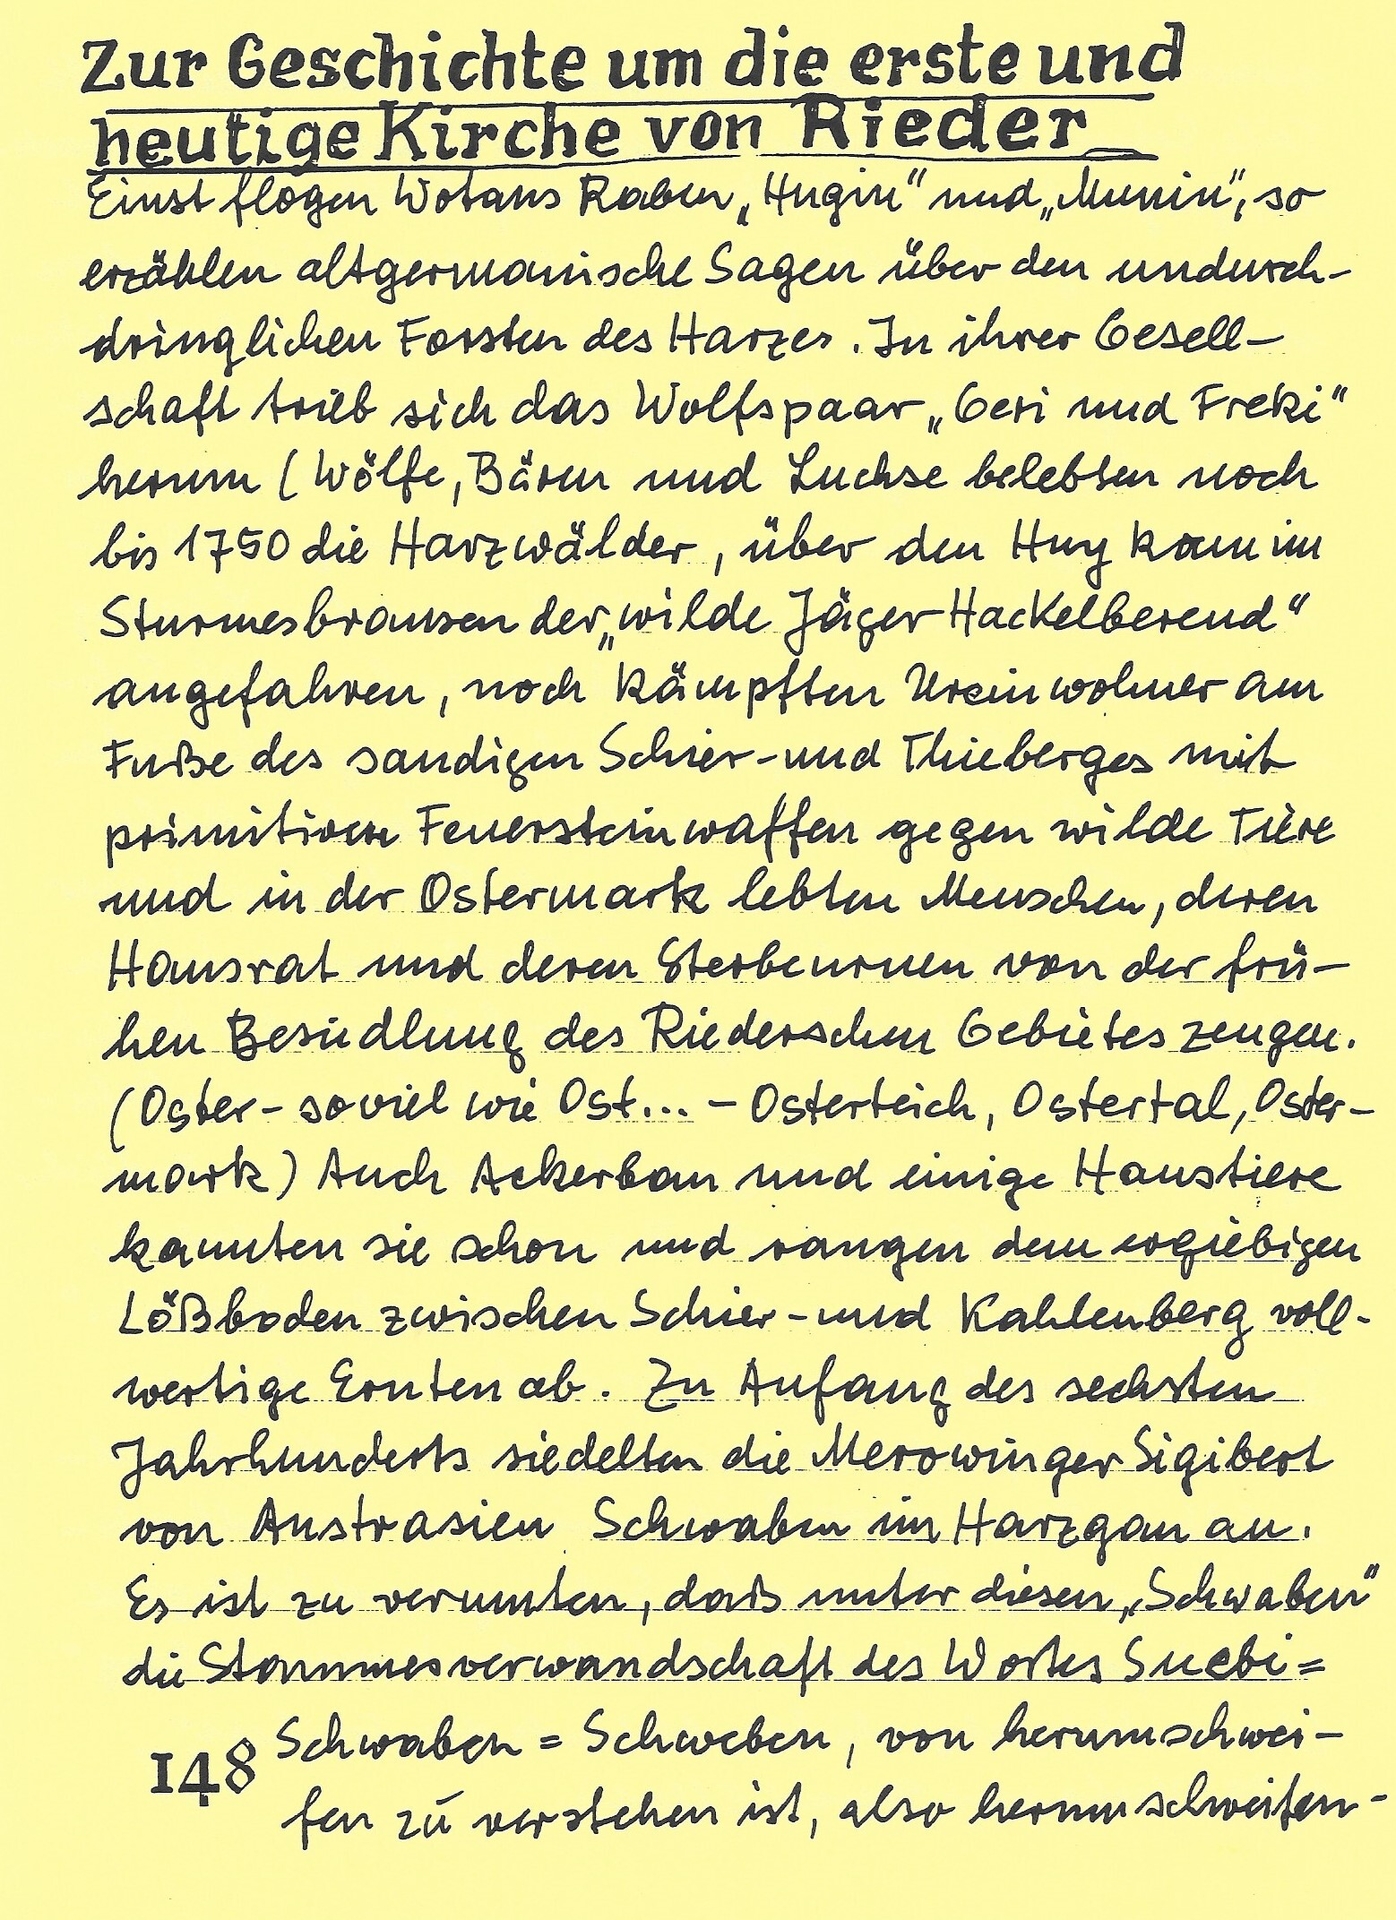 Zur Geschichte um die erste und
heutige Kirche von Rieder
Einst flogen Wotans Raben „Hugin" und „Munin", so
erzählen altgermanische Sagen über den undurch-
dringlichen Forsten des Harzes. In ihrer Gesell-
schaft trieb sich das Wolfspaar „Geri und Freki"
herum (Wölfe, Bären und Luchse belebten noch
bis 1750 die Harzwälder, über den Huy kam im
Sturmesbrausen der „wilde Jäger Hackelberend"
angefahren, noch kämpften Ureinwohner am
Fuße des sandigen Schier- und Thieberges mit
primitiven Feuersteinwaffen gegen wilde Tiere
und in der Ostermark lebten Menschen, deren
Hausrat und deren Sterbeurnen von der frü-
hen Besiedlung des Riederschen Gebietes zeugen.
(Oster- soviel wie Ost... - Osterteich, Ostertal, Oster-
mark) Auch Ackerbau und einige Haustiere
kannten sie schon und rangen dem ergiebigen
Lößboden zwischen Schier- und Kahlenberg voll-
wertige Ernten ab. Zu Anfang des sechsten
Jahrhunderts siedelten die Merowinger Sigibert
von Austrasien Schwaben im Harzgau an.
Es ist zu vermuten, daß unter diesen „Schwaben"
die Stammesverwandschaft des Wortes Suebi=
Schwaben = Schweben, von herumschwei-
148 fen zu verstehen ist, also herumschweifen-